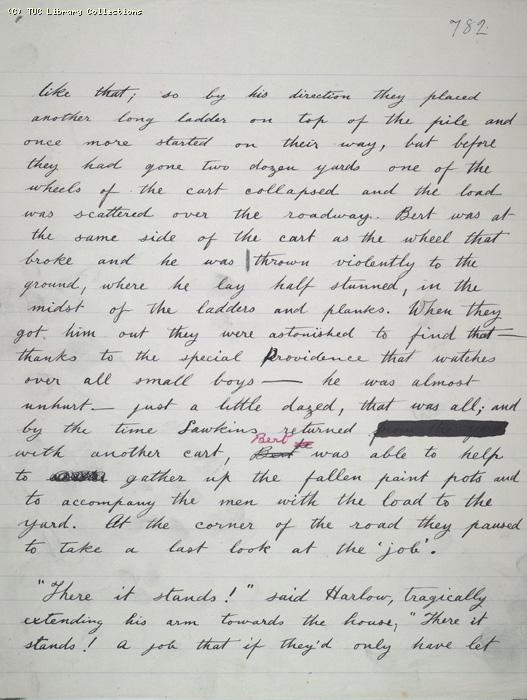 (C) TUC Library Collections
782
like that; so by his direction they placed
another long ladder on top of the pile and
once more started on their way, but before
they had gone two dozen yards one of the
wheels of the cart collapsed and the load
was scattered over the roadway. Bert was at
the same side of the cart as the wheel that
broke and he was thrown violently to the
ground, where he lay half stunned, in the
midst of the ladders and planks. When they
got him out they were astonished to find that —
thanks to the special Providence that watches
over all small boys — he was almost
unhurt — just a little dazed, that was all; and
by the time Sawkins returned
Bert
with another cart, Bert was able to help
to gather up the fallen paint pots and
to accompany the men with the load to the
yard. At the corner of the road they paused
to take a last look at the 'job'.
"There it stands!" said Harlow, tragically
extending his arm towards the house, "There it
stands! A job that if they'd only have let